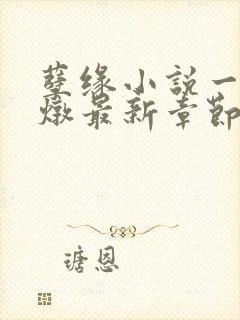 孽缘小说一
燉最新章節
瑭恩